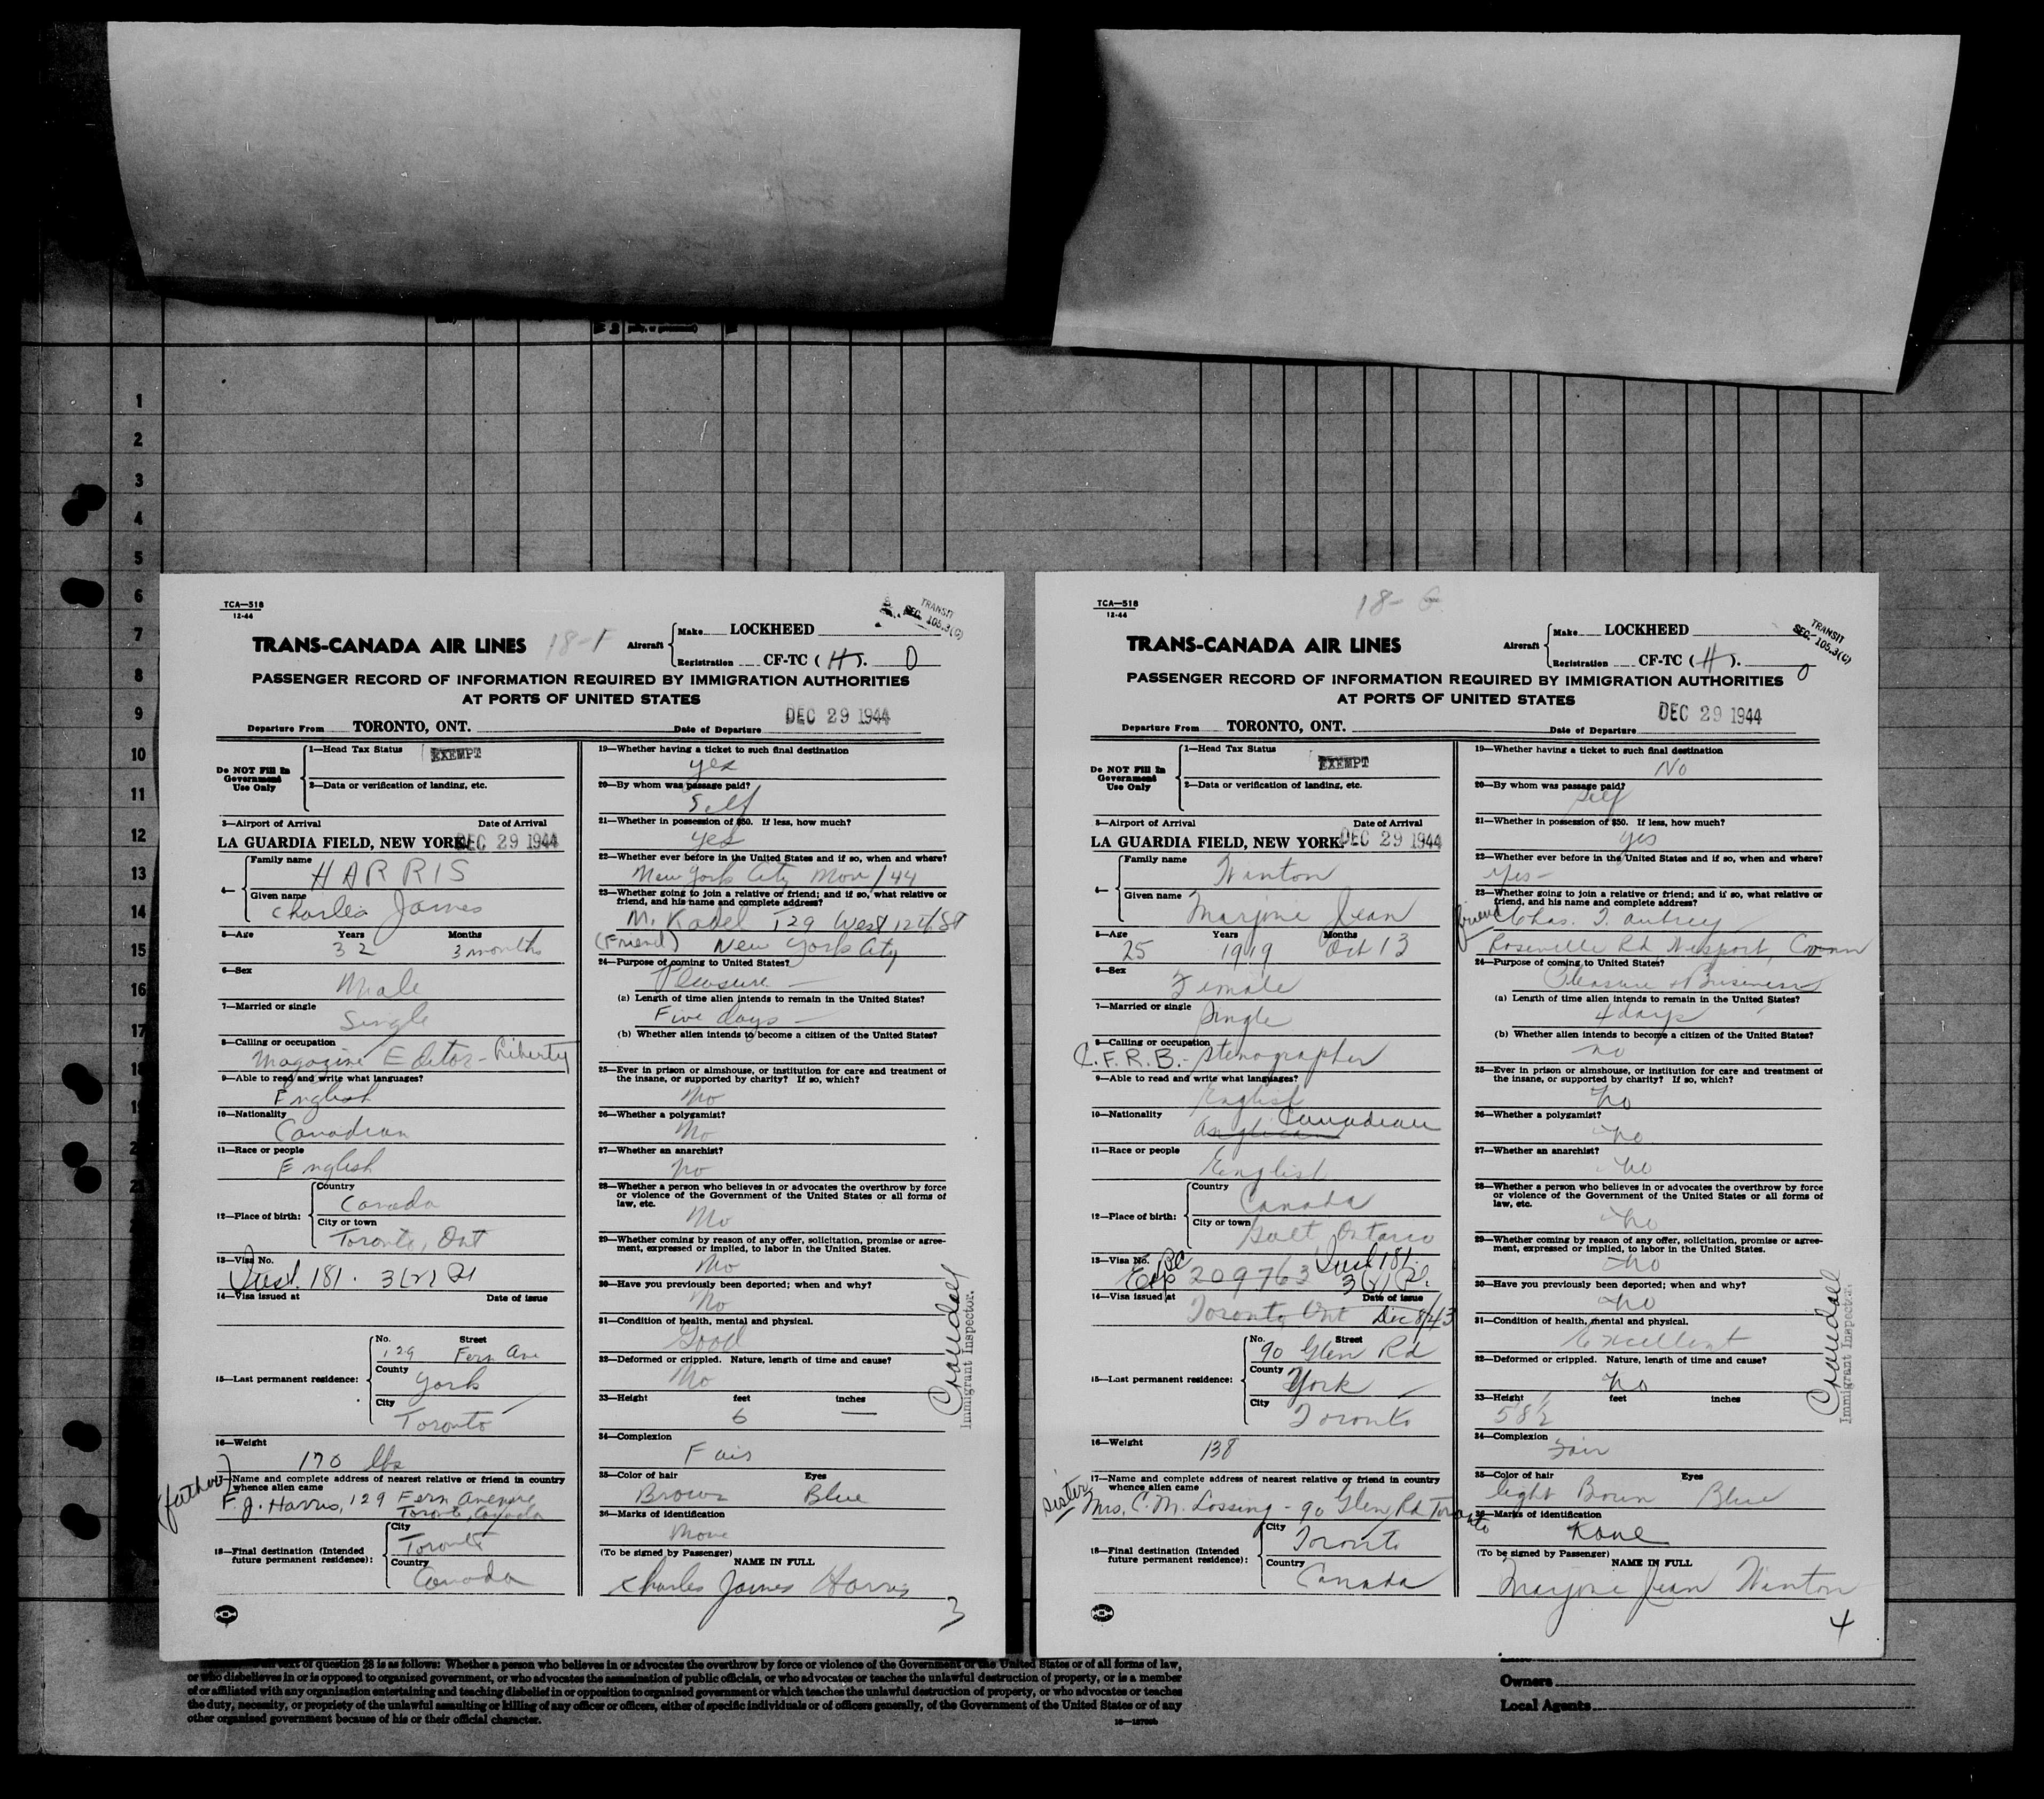 1
2
3
4
5
6
7
8
9
10
11
12
13
14
15
16
17
18
TCA—518
12-44
TRANS-CANADA AIR LINES
18-F
Aircraft
Make LOCKHEED
Registration CF-TC ( H ). O
TRANSIT
SEC. 105.3(C)
PASSENGER RECORD OF INFORMATION REQUIRED BY IMMIGRATION AUTHORITIES
AT PORTS OF UNITED STATES
DEC 29 1944
Departure From TORONTO, ONT. Date of Departure
Do NOT Fill In
Government
Use Only
1—Head Tax Status EXEMPT
2—Data or verification of landing, etc.
3—Airport of Arrival Date of Arrival
LA GUARDIA FIELD, NEW YORK DEC 29 1944
4—
Family name
HARRIS
Given name
Charles James
5—Age Years Months
32 3 months
6—Sex
Male
7—Married or single
Single
8—Calling or occupation
Magazine Editor - Liberty
9—Able to read and write what languages?
English
10—Nationality
Canadian
11—Race or people
English
12—Place of birth:
Country
Canada
City or town
Toronto, Ont
13—Visa No.
181. 3(2)
14—Visa issued at Date of issue
15—Last permanent residence:
No. Street
129 Fern Ave
County
York
City
Toronto
16—Weight
170 lbs
(father)
17—Name and complete address of nearest relative or friend in country
whence alien came
F. J. Harris, 129 Fern Avenue
Toronto, Canada
18—Final destination (Intended
future permanent residence):
City
Toronto
Country
Canada
19—Whether having a ticket to such final destination
yes
20—By whom was passage paid?
Self
21—Whether in possession of $50. If less, how much?
yes
22—Whether ever before in the United States and if so, when and where?
New York City Nov /44
23—Whether going to join a relative or friend; and if so, what relative or
friend, and his name and complete address?
M. Kadel 129 West St
(Friend) New York City
24—Purpose of coming to United States?
Pleasure —
(a) Length of time alien intends to remain in the United States?
Five days —
(b) Whether alien intends to become a citizen of the United States?
25—Ever in prison or almshouse, or institution for care and treatment of
the insane, or supported by charity? If so, which?
No
26—Whether a polygamist?
No
27—Whether an anarchist?
No
28—Whether a person who believes in or advocates the overthrow by force
or violence of the Government of the United States or all forms of
law, etc.
No
29—Whether coming by reason of any offer, solicitation, promise or agree-
ment, expressed or implied, to labor in the United States.
No
30—Have you previously been deported; when and why?
No
31—Condition of health, mental and physical.
Good
32—Deformed or crippled. Nature, length of time and cause?
No
33—Height feet inches
6 —
34—Complexion
Fair
35—Color of hair Eyes
Brown Blue
36—Marks of identification
None
(To be signed by Passenger)
NAME IN FULL
Charles James Harris
3
Crandall
Immigrant Inspector.
TCA—518
12-44
18-G
TRANS-CANADA AIR LINES
Aircraft
Make LOCKHEED
Registration CF-TC ( H ). O
TRANSIT
SEC. 105.3(C)
PASSENGER RECORD OF INFORMATION REQUIRED BY IMMIGRATION AUTHORITIES
AT PORTS OF UNITED STATES
DEC 29 1944
Departure From TORONTO, ONT. Date of Departure
Do NOT Fill In
Government
Use Only
1—Head Tax Status EXEMPT
2—Data or verification of landing, etc.
3—Airport of Arrival Date of Arrival
LA GUARDIA FIELD, NEW YORK. DEC 29 1944
4—
Family name
Winton
Given name
Marjorie Jean
5—Age Years Months
25 1919 Oct 13
6—Sex
Female
7—Married or single
Single
8—Calling or occupation
C.F.R.B. - Stenographer
9—Able to read and write what languages?
English
10—Nationality
Anglican Canadian
11—Race or people
English
12—Place of birth:
Country
Canada
City or town
Galt Ontario
13—Visa No.
209763 181. 3(2)
14—Visa issued at Date of issue
Toronto Ont Dec 8/43
15—Last permanent residence:
No. Street
90 Glen Rd
County
York
City
Toronto
16—Weight
138
17—Name and complete address of nearest relative or friend in country
whence alien came
sister Mrs. C. M. Lossing - 90 Glen Rd Toronto
18—Final destination (Intended
future permanent residence):
City
Toronto
Country
Canada
19—Whether having a ticket to such final destination
No
20—By whom was passage paid?
Self
21—Whether in possession of $50. If less, how much?
yes
22—Whether ever before in the United States and if so, when and where?
Yes —
23—Whether going to join a relative or friend; and if so, what relative or
friend, and his name and complete address?
friend Chas. T. Aubrey
Roseville Rd Westport, Conn
24—Purpose of coming to United States?
Pleasure & Business
(a) Length of time alien intends to remain in the United States?
4 days
(b) Whether alien intends to become a citizen of the United States?
no
25—Ever in prison or almshouse, or institution for care and treatment of
the insane, or supported by charity? If so, which?
no
26—Whether a polygamist?
no
27—Whether an anarchist?
no
28—Whether a person who believes in or advocates the overthrow by force
or violence of the Government of the United States or all forms of
law, etc.
no
29—Whether coming by reason of any offer, solicitation, promise or agree-
ment, expressed or implied, to labor in the United States.
no
30—Have you previously been deported; when and why?
no
31—Condition of health, mental and physical.
Excellent
32—Deformed or crippled. Nature, length of time and cause?
no
33—Height feet inches
5 8½
34—Complexion
Fair
35—Color of hair Eyes
light Brown Blue
36—Marks of identification
(To be signed by Passenger)
NAME IN FULL
Marjorie Jean Winton
4
Crandall
Immigrant Inspector.
of question 28 is as follows: Whether a person who believes in or advocates the overthrow by force or violence of the Government of the United States or of all forms of law,
or who disbelieves in or is opposed to organized government, or who advocates the assassination of public officials, or who advocates or teaches the unlawful destruction of property, or is a member
of or affiliated with any organization entertaining and teaching disbelief in or opposition to organized government or which teaches the unlawful destruction of property, or who advocates or teaches
the duty, necessity, or propriety of the unlawful assaulting or killing of any officer or officers, either of specific individuals or of officers generally, of the Government of the United States or of any
other organized government because of his or their official character.
Owners
Local Agents